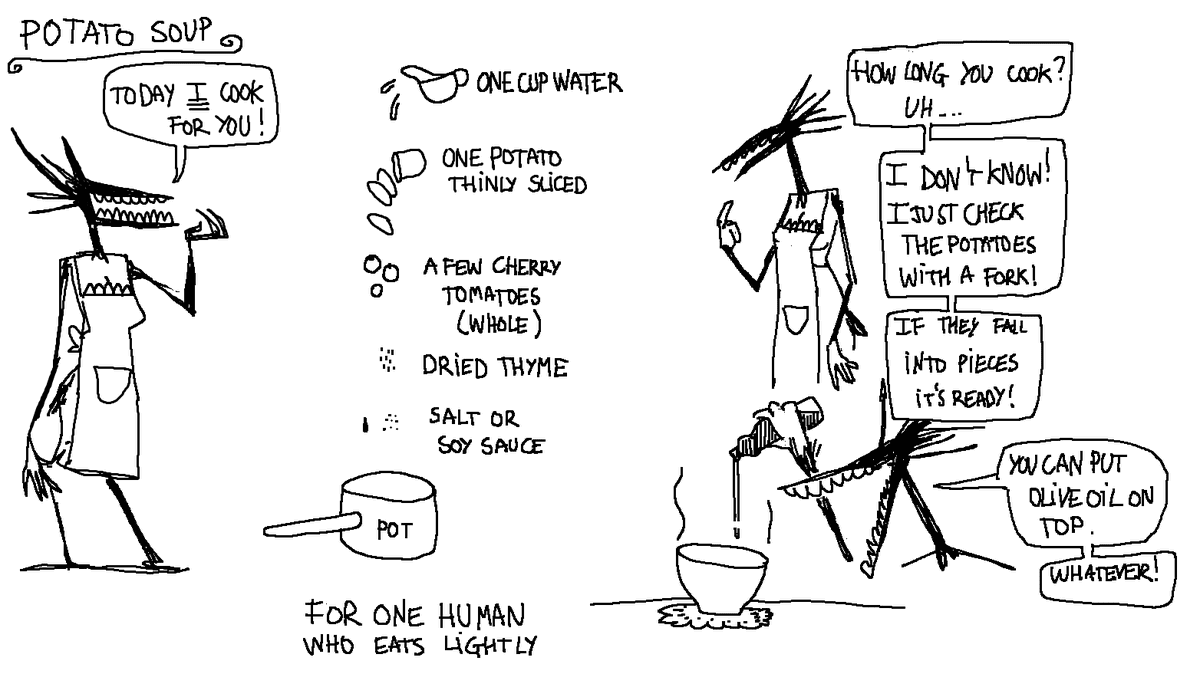 POTATO SOUP
TODAY I COOK
FOR YOU!
ONE CUP WATER
ONE POTATO
THINLY SLICED
A FEW CHERRY
TOMATOES
(WHOLE)
DRIED THYME
SALT OR
SOY SAUCE
POT
FOR ONE HUMAN
WHO EATS LIGHTLY
HOW LONG YOU COOK?
UH...
I DON'T KNOW!
I JUST CHECK
THE POTATOES
WITH A FORK!
IF THEY FALL
INTO PIECES
IT'S READY!
YOU CAN PUT
OLIVE OIL ON
TOP.
WHATEVER!